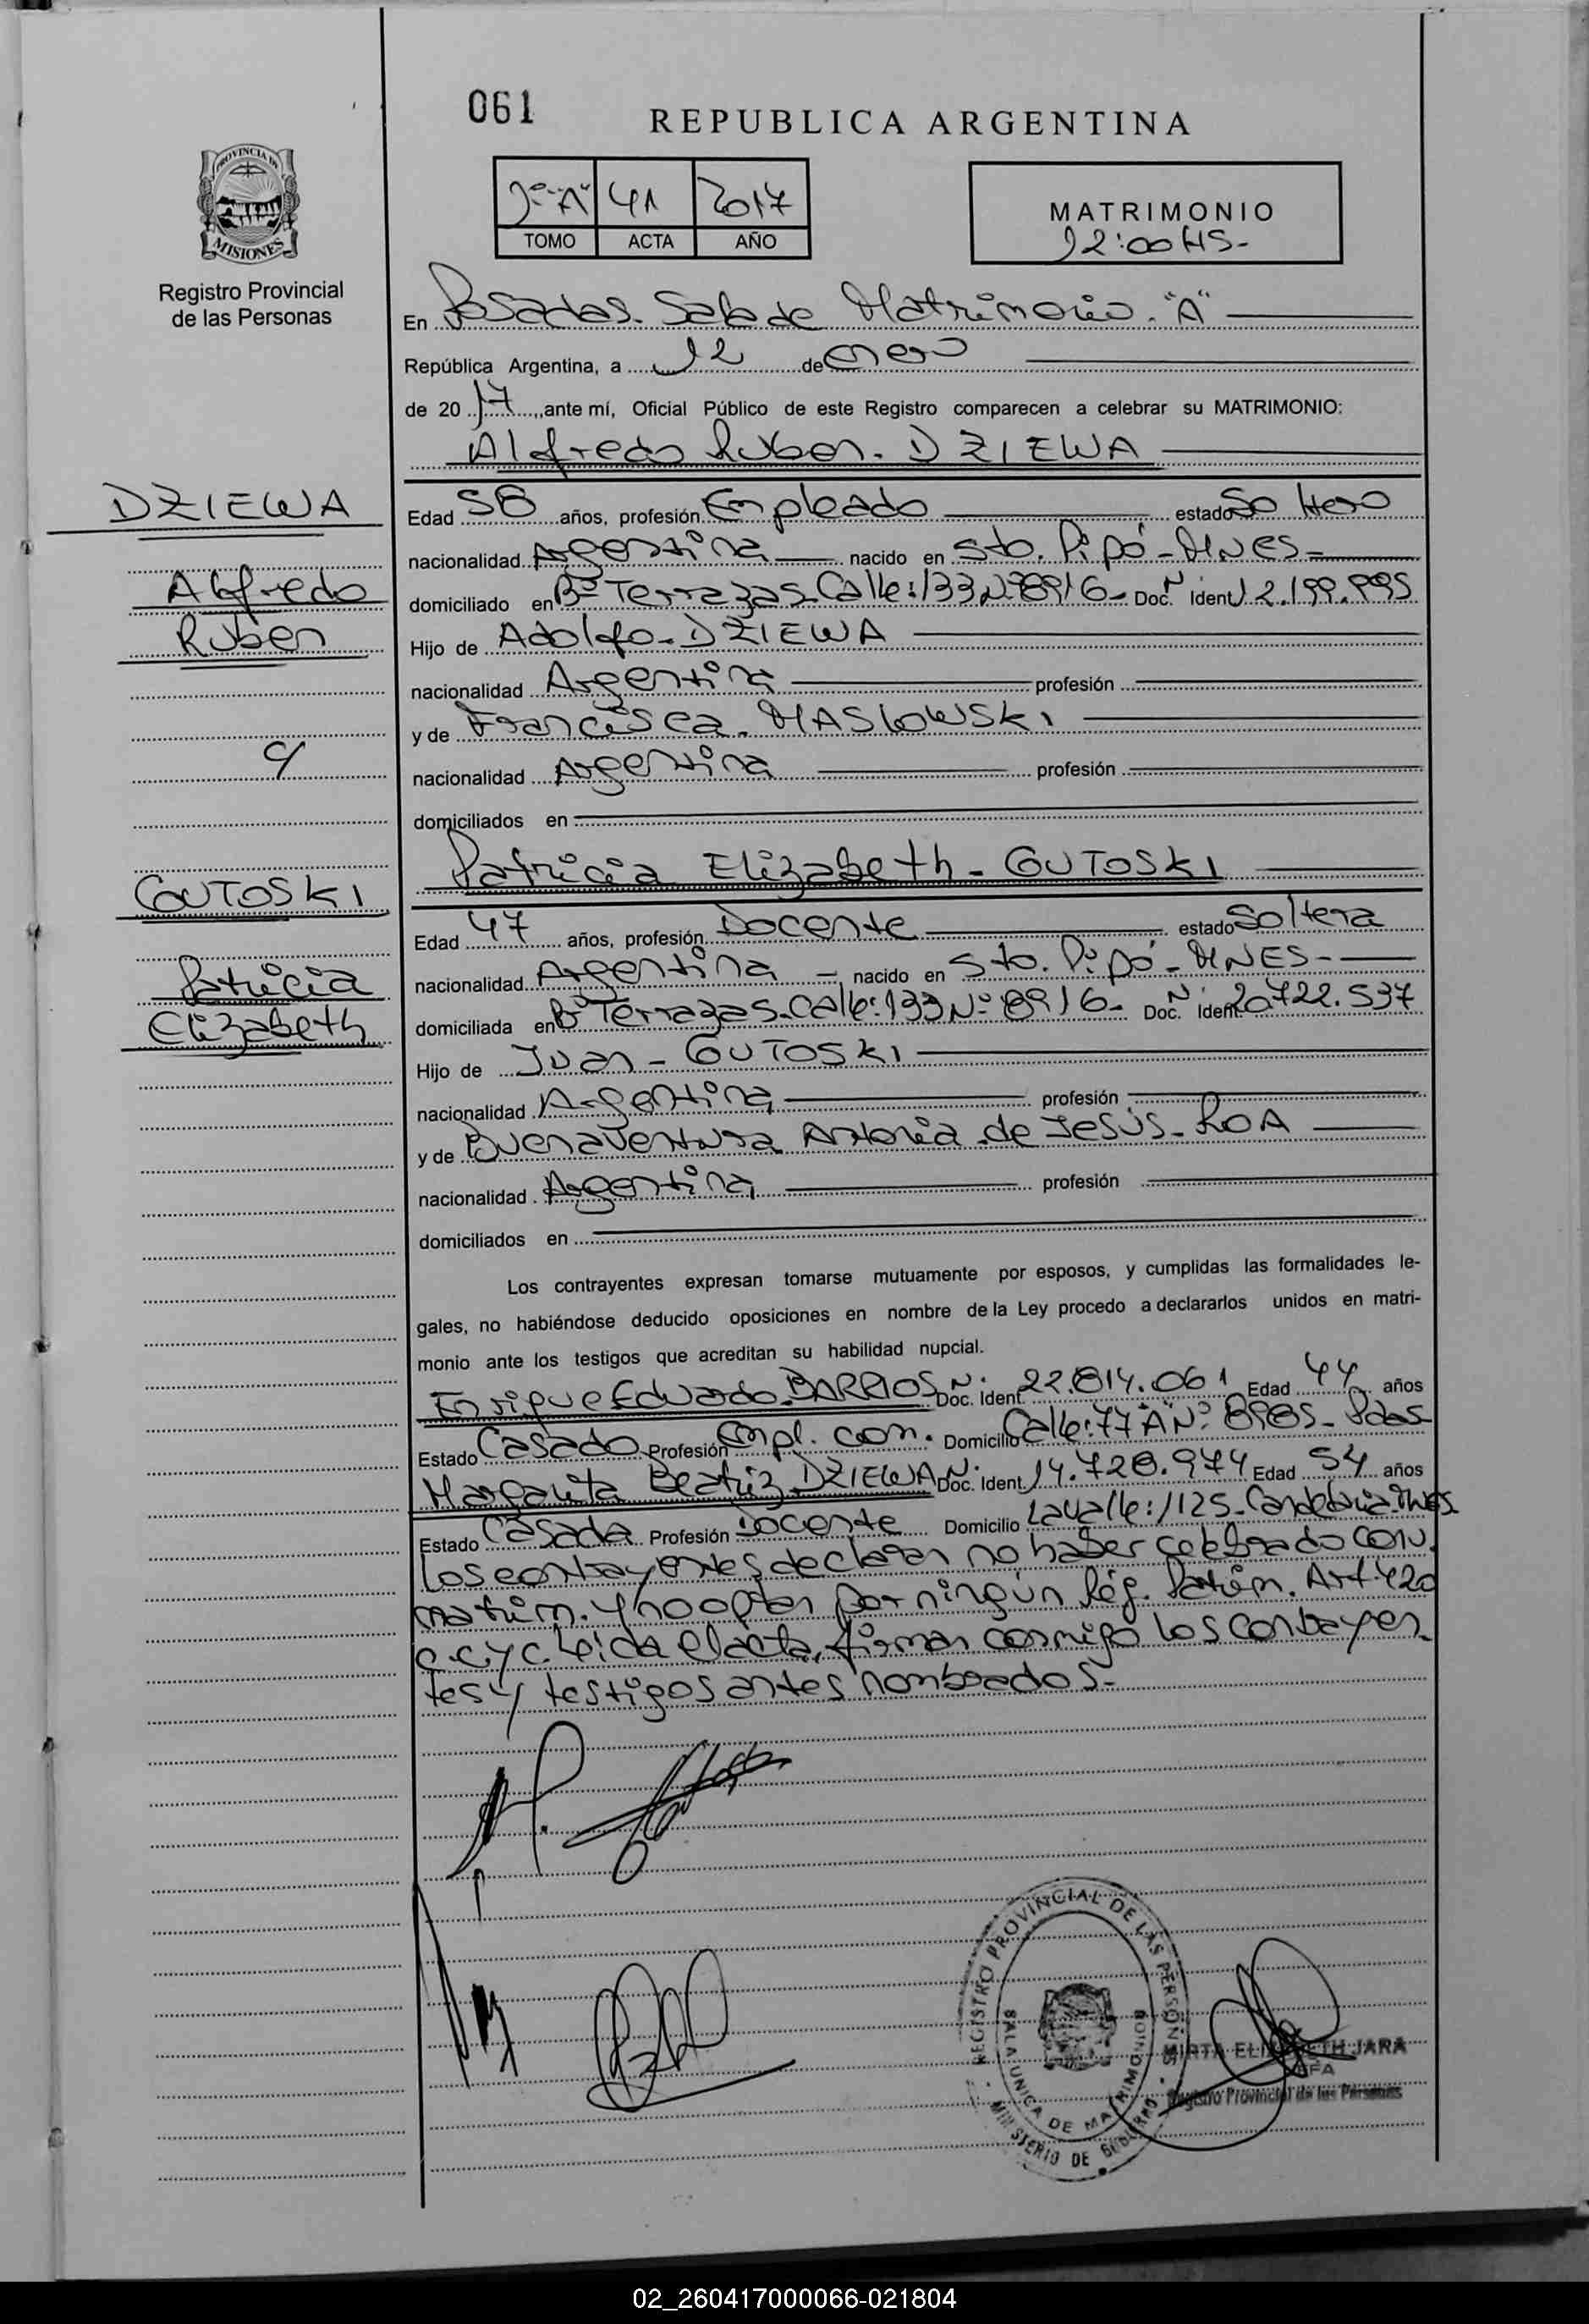 061
REPUBLICA ARGENTINA
1º "A" 41 2017
TOMO ACTA AÑO
MATRIMONIO
12:00 HS-
PROVINCIA DE
MISIONES
Registro Provincial
de las Personas
En Posadas. Sala de Matrimonio. "A"
República Argentina, a 12 de enero
de 2017, ante mí, Oficial Público de este Registro comparecen a celebrar su MATRIMONIO:
Alfredo Ruben. DZIEWA
DZIEWA
Alfredo
Ruben
c/
GUTOSKI
Patricia
Elizabeth
Edad 58 años, profesión Empleado estado Soltero
nacionalidad Argentina nacido en Sto. Pipó - MNES -
domiciliado en Bº Terrazas Calle: 133 Nº 8916 - Doc. N. Ident 12.199.995
Hijo de Adolfo - DZIEWA
nacionalidad Argentina profesión
y de Francisca. MASLOWSKI
nacionalidad Argentina profesión
domiciliados en
Patricia Elizabeth - GUTOSKI
Edad 47 años, profesión Docente estado Soltera
nacionalidad Argentina - nacido en Sto. Pipó - MNES -
domiciliada en Bº Terrazas - Calle: 133 Nº 8916 - Doc. N. Ident. 20.722.537
Hijo de Juan - GUTOSKI
nacionalidad Argentina profesión
y de Buenaventura Antonia de Jesús - ROA
nacionalidad Argentina profesión
domiciliados en
Los contrayentes expresan tomarse mutuamente por esposos, y cumplidas las formalidades le-
gales, no habiéndose deducido oposiciones en nombre de la Ley procedo a declararlos unidos en matri-
monio ante los testigos que acreditan su habilidad nupcial.
Enrique Eduardo. BARRIOS Doc. N. Ident. 22.814.061 Edad 44 años
Estado Casado Profesión Empl. com. Domicilio Calle: 77 "A" Nº 8985 - Pdas
Margarita Beatriz DZIEWA Doc. N. Ident. 14.728.974 Edad 54 años
Estado Casada Profesión Docente Domicilio Lavalle: 1125 - Candelaria. Mnes.
Los contrayentes declaran no haber celebrado conv.
matrim. y no optan por ningún Rég. Patrim. Art 420
C.C y C. Leída el acta, firman conmigo los contrayen-
tes y testigos antes nombrados.-
REGISTRO PROVINCIAL DE LAS PERSONAS
SALA UNICA DE MATRIMONIOS
MINISTERIO DE GOBIERNO
MIRTA ELIZABETH JARA
JEFA
Registro Provincial de las Personas
02_260417000066-021804